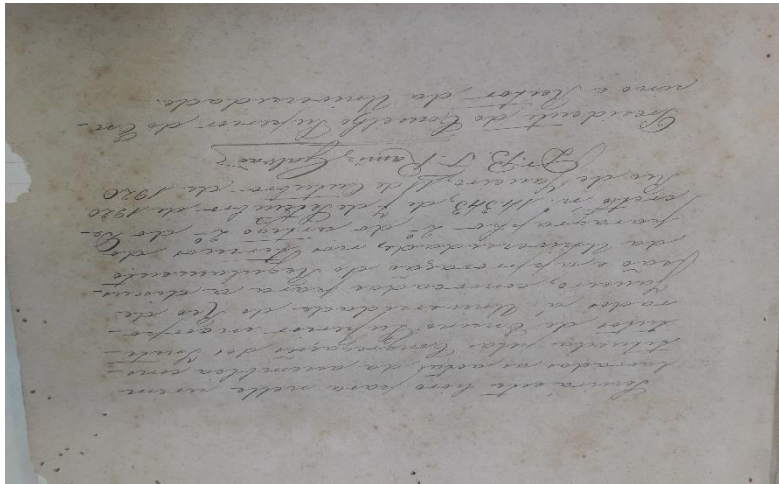 Servirá este livro para nelle serem
lavradas as actas da assemblea cons-
tituida pelas Congregações dos Insti-
tutos de Ensino Superior incorpo-
rados á Universidade do Rio de
Janeiro, convocadas para a discus-
são e approvação do Regulamento
da Universidade, nos termos do
paragrapho 2º do artigo 2º do De-
creto n. 14.343, de 7 de Setembro de 1920
Rio de Janeiro, de Outubro de 1920
Dr. B. F. Ramiz Galvão
Presidente do Conselho Superior do En-
sino e Reitor da Universidade.